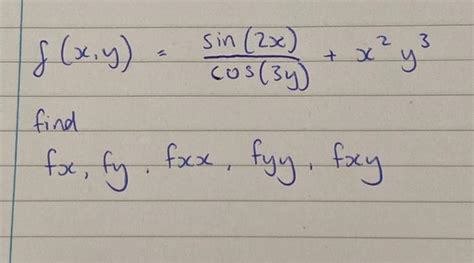 f(x,y) = sin(2x)/cos(3y) + x² y³
find
fx, fy, fxx, fyy, fxy